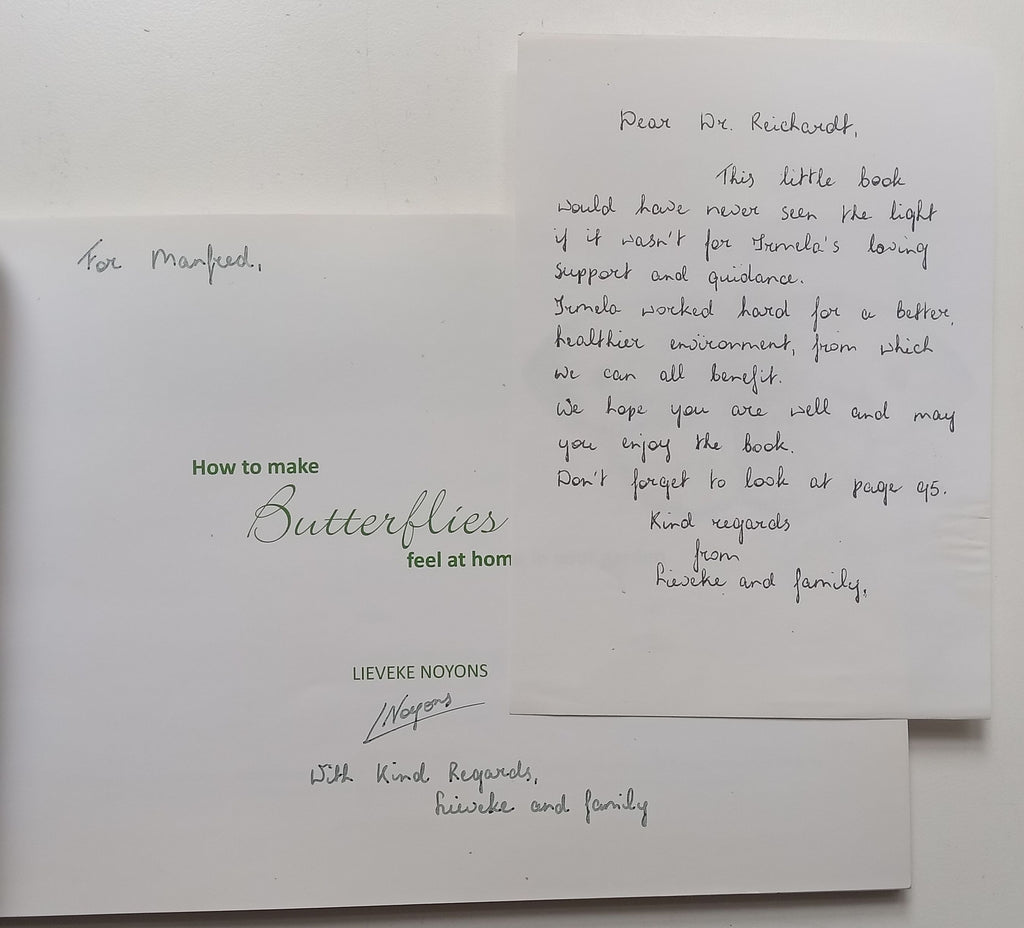 For Manfred,
How to make
Butterflies
feel at hom
LIEVEKE NOYONS
LNoyons
With Kind Regards,
Lieveke and family
Dear Dr. Reichardt,
This little book
would have never seen the light
if it wasn't for Irmela's loving
support and guidance.
Irmela worked hard for a better,
healthier environment, from which
we can all benefit.
We hope you are well and may
you enjoy the book.
Don't forget to look at page 95.
Kind regards
from
Lieveke and family.